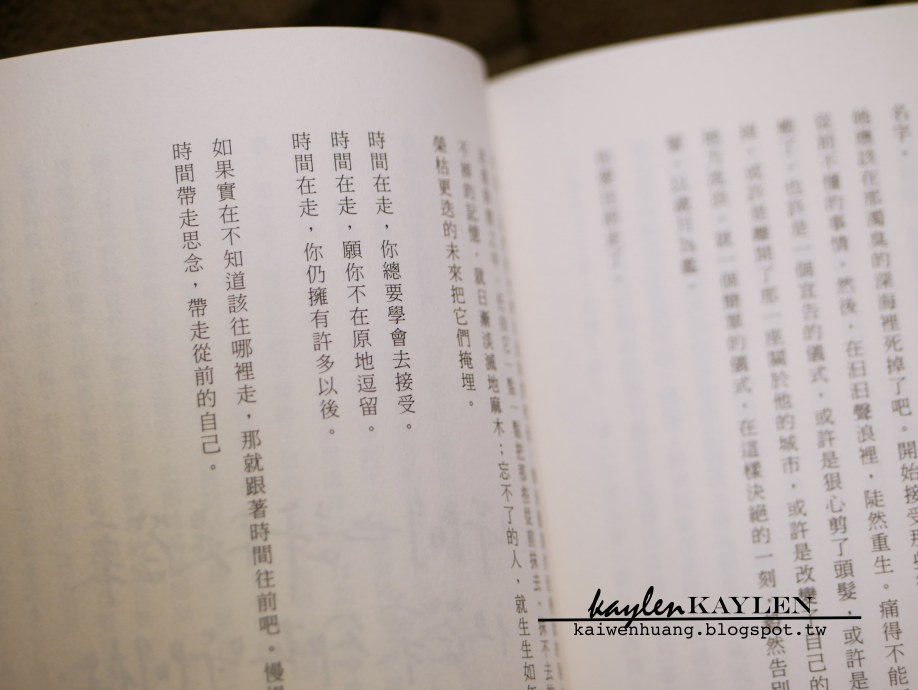 名字。
她應該在那濁臭的深海裡死掉了吧。開始接受那些
從前不懂的事情，然後，在日日聲浪裡，陡然重生。痛得不能
了。也許是一個宣告的儀式，或許是狠心剪了頭髮，或許是
或許是離開了那一座關於他的城市，或許是改變了自己的
就一個簡單的儀式，在這樣決絕的一刻，毅然告別
以歲月為
不掉的記憶，就日漸淡滅地麻木；忘不了的人，就生生如
榮枯更迭的未來把它們掩埋。
時間在走，你總要學會去接受。
時間在走，願你不在原地逗留。
時間在走，你仍擁有許多以後。
如果實在不知道該往哪裡走，那就跟著時間往前吧。慢慢
時間帶走思念，帶走從前的自己。
kaylenKAYLEN
kaiwenhuang.blogspot.tw